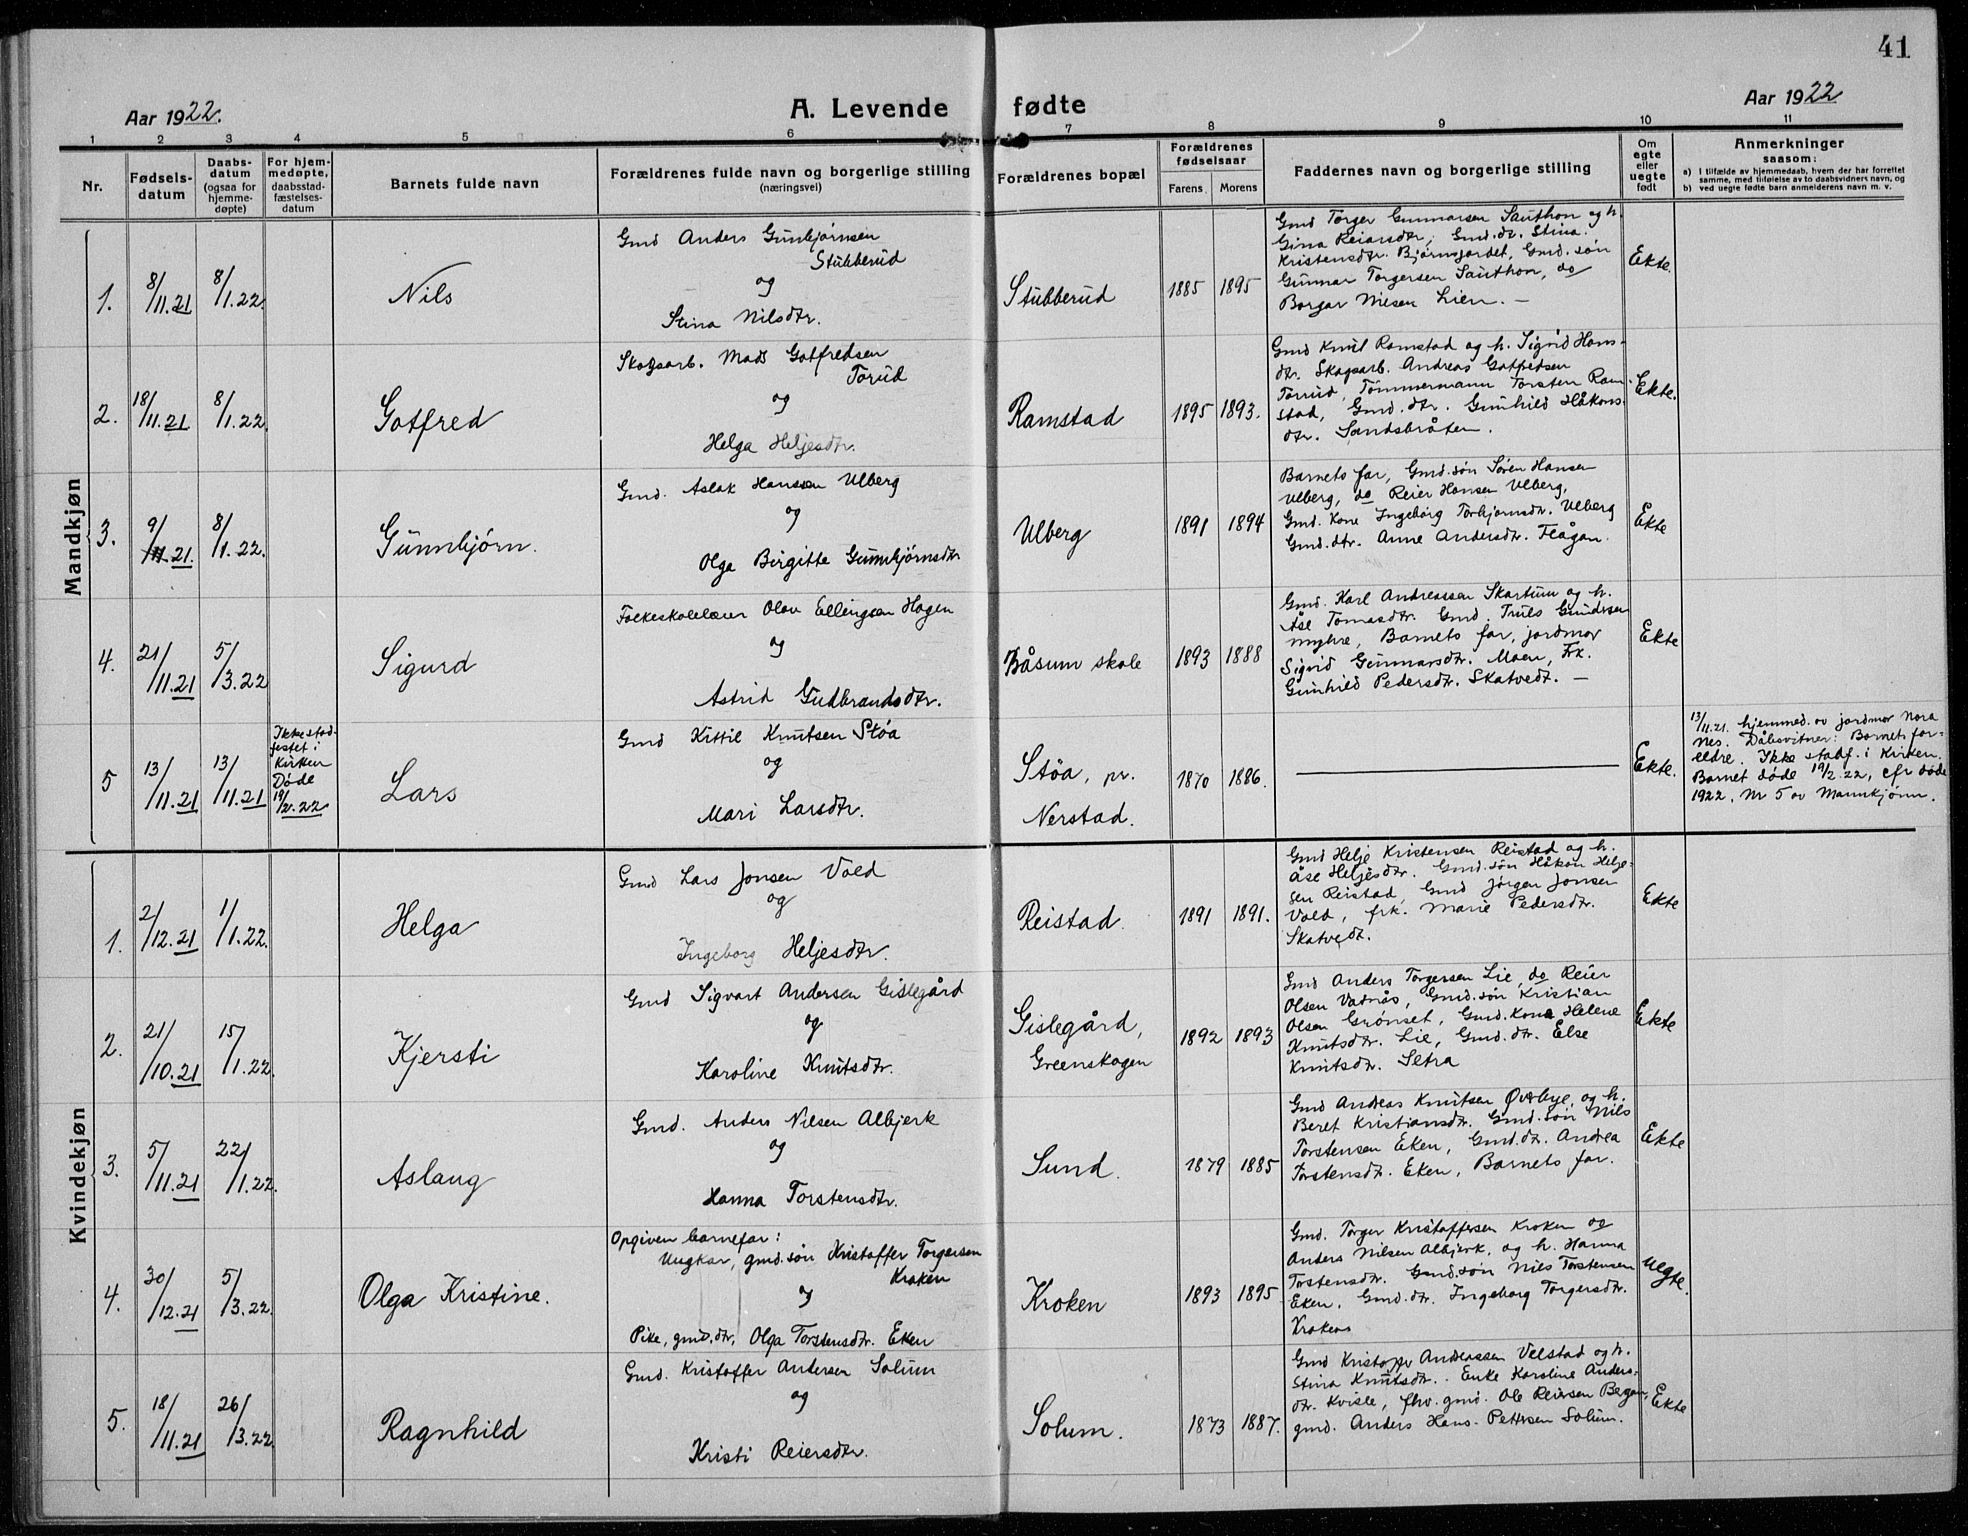 41
Aar 1922.
A. Levende fødte
Aar 1922
1 2 3 4 5 6 7 8 9 10 11
Nr.
Fødsels-
datum
Daabs-
datum
(ogsaa for
hjemme-
døpte)
For hjem-
medøpte,
daabsstad-
fæstelses-
datum
Barnets fulde navn
Forældrenes fulde navn og borgerlige stilling
(næringsvei)
Forældrenes bopæl
Forældrenes
fødselsaar
Farens. Morens
Faddernes navn og borgerlige stilling
Om
egte
eller
uegte
født
Anmerkninger
saasom:
a) I tilfælde av hjemmedaab, hvem der har forrettet
samme, med tilføielse av to daabsvidners navn, og
b) ved uegte fødte barn anmelderens navn m. v.
Mandkjøn
1. 8/11.21 8/1.22. Nils
Gmd Anders Gunbjørnsen
Stubberud
og
Stina Nilsdtr.
Stubberud 1885 1895
Gmd Torger Gunnarsen Sauthon og h.
Gina Reiarsdtr, Gmd.dr. Stina
Kristensdtr. Bjørnsjordet, Gmd.søn
Gunnar Torgersen Sauthon, do
Borgar Nilsen Lien. —
Ekte.
2. 18/11.21 8/1.22. Gotfred
Skogsarb. Mads Gotfredsen
Torud
og
Helga Heljesdtr.
Ramstad 1895 1893.
Gmd Knut Ramstad og h. Sigrid Hans-
dtr. Skogsarb. Andreas Gotfredsen
Torrud, Tømmermann Torsten Ram-
stad, Gmd.dtr. Gunhild Håkons-
dtr. Sandsbråten.
Ekte.
3. 9/11.21. 8/1.22. Gunnbjørn.
Gmd. Aslak Hanssen Ulberg
og
Olga Birgitte Gunnbjørnsdtr
Ulberg 1891 1894
Barnets far, Gmd.søn Søren Hansen
Ulberg, do Reier Hansen Ulberg,
Gmd. kone Ingebørg Torbjørnsdtr. Ulberg
Gmd.dtr. Anne Andersdtr. Flågan.
Ekte
4. 21/11.21 5/3.22 Sigurd
Folkeskolelærer Olav Ellingsen Hagen
og
Astrid Gudbrandsdtr.
Båsum skole 1893 1888
Gmd. Karl Andreassen Skartum og h.
Åse Tomasdtr. Gmd. Truls Gundersen
myhre, Barnets far, jordmor
Sigrid Gunnarsdtr. Moen, Frk.
Gunhild Pedersdtr. Skatvedt. —
Ekte
5 13/11.21 13/11.21
Ikke stad-
festet i
kirken
Døde
19/2.22
Lars
Gmd Kittil Knutsen Støa
og
Mari Larsdtr.
Støa, pr.
Nerstad.
1870 1886.
Ekte.
13/11.21. hjemmed. av jordmor Nora
Nes. Dåbsvitner: Barnets for-
eldre. Ikke stadf. i Kirken.
Barnet døde 19/2.22, cfr døde
1922, Nr 5 av Mannkjønn.
Kvindekjøn
1. 2/12.21 1/1.22. Helga
Gmd Lars Jonsen Vold
og
Ingeborg Heljesdtr.
Reistad. 1891 1891.
Gmd Helje Kristensen Reistad og h.
Åse Heljesdtr. Gmd.søn Håkon Helje-
sen Reistad, Gmd Jørgen Jonsen
Vold, frk. Marie Pedersdtr.
Skatvedt.
Ekte
2. 21/10.21 15/1.22. Kjersti
Gmd Sigvart Andersen Gislegård
og
Karoline Knutsdtr.
Gislegård,
Greenskogen
1892 1893
Gmd Anders Torgersen Lie, do Reier
Olsen Vadnås, Gmd.søn Kristian
Olsen Grønset, Gmd.kone Helene
Knutsdtr. Lie, Gmd.dtr. Else
Knutsdtr. Setra
Ekte
3. 5/11.21 22/1.22. Aslaug
Gmd. Anders Nilsen Albjerk
og
Hanna Torstensdtr.
Sund. 1879 1885
Gmd Andreas Knutsen Øverbye, og h.
Beret Kristiansdtr. Gmd.søn Nils
Torstensen Eken, Gmd.dtr. Andrea
Torstensdtr. Eken, Barnets far.
Ekte
4. 30/12.21 5/3.22. Olga Kristine.
Opgiven barnefar:
Ungkar, gmd.søn Kristoffer Torgersen
Kroken
og
Pike, gmd.dtr, Olga Torstensdtr. Eken
Kroken 1893 1895
Gmd. Torger Kristoffersen Kroken og
Anders Nilsen Albjerk, og h. Hanna
Torstensdtr. Gmd.søn Nils Torstensen
Eken. Gmd.dtr. Ingeborg Torgersdtr.
Kroken
Uegte.
5. 18/11.21 26/3.22. Ragnhild
Gmd. Kristoffer Andersen Solum
og
Kristi Reiersdtr.
Solum. 1873 1887.
Gmd Kristoffer Andreassen Velstad og h.
Stina Knutsdtr.. Enke Karoline Anders-
dtr. Kvisle, fhv. gmd. Ole Reiersen Bergan,
gmd. Anders Hans-Pettersen Solum.
Ekte